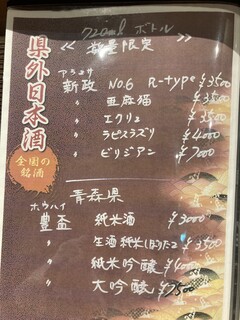 県外日本酒
全国の銘酒
720ml ボトル
<< 数量限定 >>
アラマサ
新政 No.6 R-type ¥3500
〃 亜麻猫 ¥3500
〃 エクリュ ¥3500
〃 ラピスラズリ ¥4000
〃 ビリジアン ¥7000
青森県
ホウハイ
豊盃 純米酒 ¥3000
〃 生酒 純米 ¥3500
〃 純米吟醸 ¥4000
〃 大吟醸 ¥7500